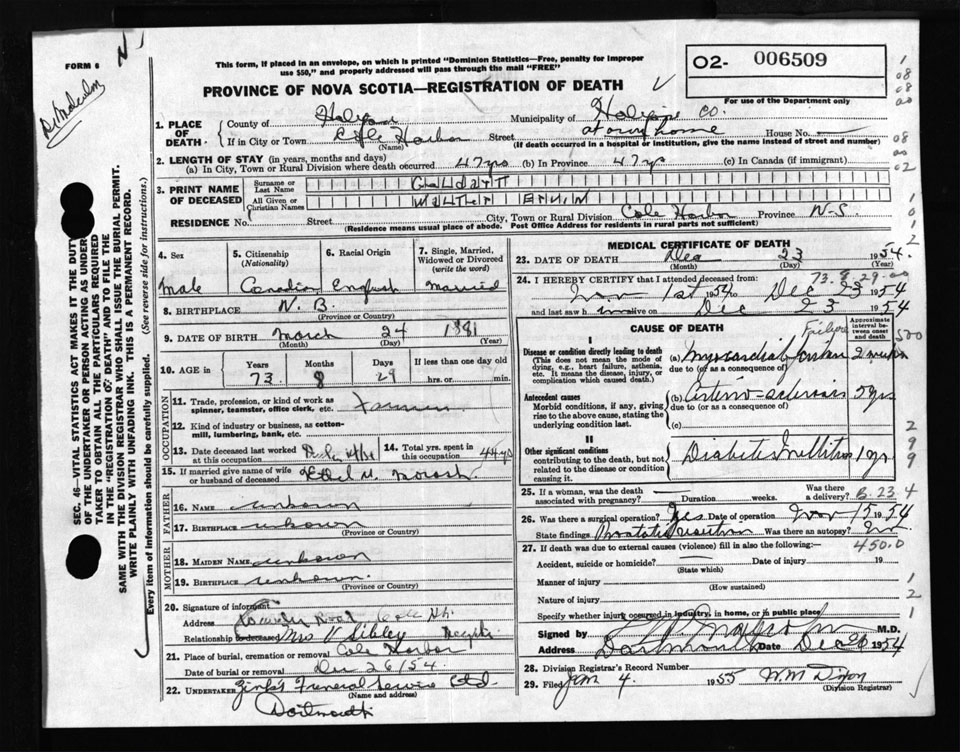 FORM 6
This form, if placed in an envelope, on which is printed "Dominion Statistics—Free, penalty for improper
use $50," and properly addressed will pass through the mail "FREE"
O2- 006509
For use of the Department only
PROVINCE OF NOVA SCOTIA—REGISTRATION OF DEATH
Dr Malcolm
1. PLACE OF DEATH
County of Halifax Municipality of Halifax Co.
If in City or Town Cole Harbor Street at own home House No.
(Name) (If death occurred in a hospital or institution, give the name instead of street and number)
2. LENGTH OF STAY (in years, months and days)
(a) In City, Town or Rural Division where death occurred 47 yrs (b) In Province 47 yrs (c) In Canada (if immigrant)
3. PRINT NAME OF DECEASED
Surname or Last Name
All Given or Christian Names WALTER
RESIDENCE No. Street City, Town or Rural Division Cole Harbor Province N-S.
(Residence means usual place of abode. Post Office Address for residents in rural parts not sufficient)
4. Sex
Male
5. Citizenship (Nationality)
Canadian
6. Racial Origin
English
7. Single, Married, Widowed or Divorced (write the word)
Married
8. BIRTHPLACE N.B.
(Province or Country)
9. DATE OF BIRTH March 24 1881
(Month) (Day) (Year)
10. AGE in Years Months Days If less than one day old
73 8 29 hrs. or min.
OCCUPATION
11. Trade, profession, or kind of work as
spinner, teamster, office clerk, etc. Farmer
12. Kind of industry or business, as cotton-
mill, lumbering, bank, etc.
13. Date deceased last worked at this occupation
14. Total yrs. spent in this occupation 44 yrs
15. If married give name of wife
or husband of deceased
FATHER
16. Name unknown
17. Birthplace unknown
(Province or Country)
MOTHER
18. Maiden Name unknown
19. Birthplace unknown.
(Province or Country)
20. Signature of informant
Address Cole Hb.
Relationship to deceased Mrs H Sibley
21. Place of burial, cremation or removal Cole Harbor
Date of burial or removal Dec 26/54.
22. UNDERTAKER Zink's Funeral Service Ltd.
(Name and address)
Dartmouth
MEDICAL CERTIFICATE OF DEATH
23. DATE OF DEATH Dec 23 1954.
(Month) (Day) (Year)
73.8.29.00
24. I HEREBY CERTIFY that I attended deceased from:
Nov 1st 1954 to Dec 23 1954
and last saw him alive on Dec 23 1954
CAUSE OF DEATH
Approximate interval between onset and death
I
Disease or condition directly leading to death
(This does not mean the mode of
dying, e.g., heart failure, asthenia,
etc. It means the disease, injury, or
complication which caused death.)
(a) Myocardial Failure 2 weeks
due to (or as a consequence of)
Antecedent causes
Morbid conditions, if any, giving
rise to the above cause, stating the
underlying condition last.
(b) Arterio-sclerosis 5 yrs
due to (or as a consequence of)
(c)
II
Other significant conditions
contributing to the death, but not
related to the disease or condition
causing it.
Diabetes Mellitus 1 yr
25. If a woman, was the death
associated with pregnancy? Duration weeks. Was there a delivery? B.23.4
26. Was there surgical operation? Yes Date of operation Nov 15 1954
State findings Was there an autopsy? No
27. If death was due to external causes (violence) fill in also the following:— 450.0
Accident, suicide or homicide? Date of injury 19
(State which)
Manner of injury
(How sustained)
Nature of injury
Specify whether injury occurred in industry, in home, or in public place
Signed by Malcolm M.D.
Address Dartmouth Date Dec 1954
28. Division Registrar's Record Number
29. Filed Jan 4 1955 W.M Dixon
(Division Registrar)
SEC. 46—VITAL STATISTICS ACT MAKES IT THE DUTY
OF THE UNDERTAKER OR PERSON ACTING AS UNDER-
TAKER TO OBTAIN ALL THE PARTICULARS REQUIRED
IN THE "REGISTRATION OF DEATH" AND TO FILE THE
SAME WITH THE DIVISION REGISTRAR WHO SHALL ISSUE THE BURIAL PERMIT.
WRITE PLAINLY WITH UNFADING INK. THIS IS A PERMANENT RECORD.
Every item of information should be carefully supplied. (See reverse side for instructions.)